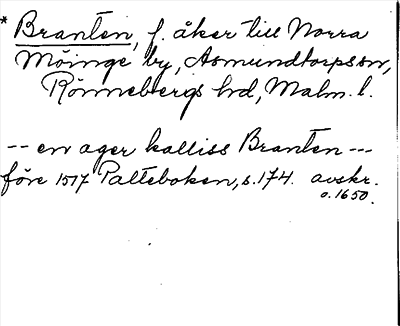 * Branten, f. åker till Norra
Möinge by, Asmundtorpssn,
Rönnebergs hd, Malm. l.
-- en ager kalliss Branten ---
före 1517 Palteboken, s. 174. avskr.
o. 1650.